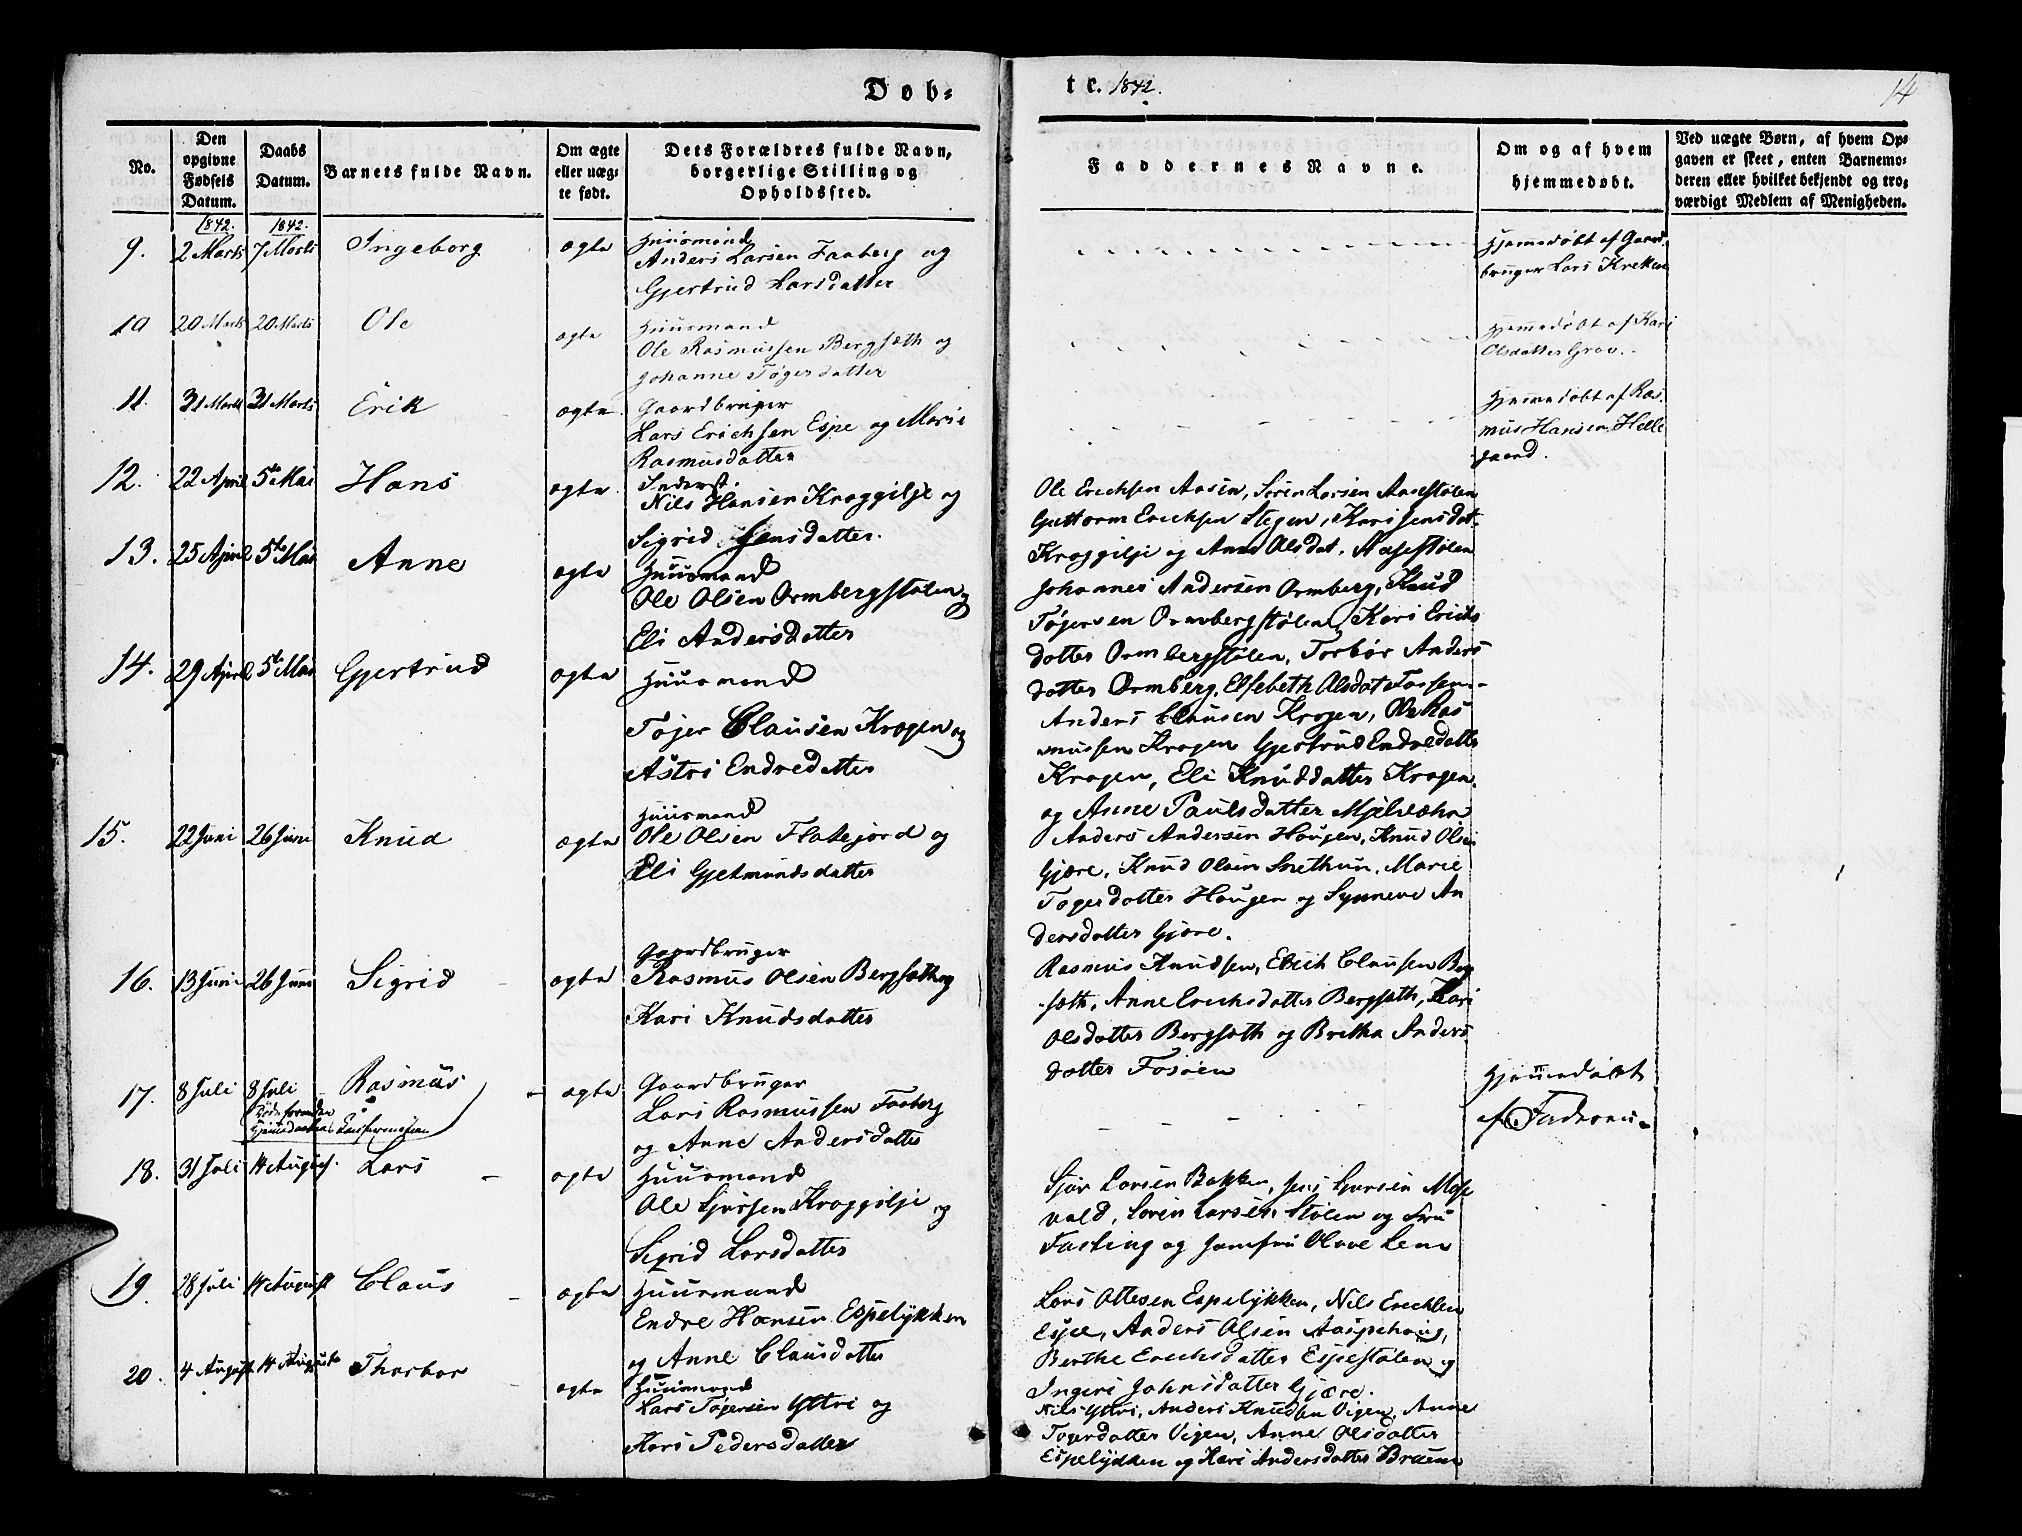 Døb=
te. 1842.
14
No.
Den
opgivne
Fødsels
Datum.
Daabs
Datum.
Barnets fulde Navn.
Om ægte
eller uæg=
te født.
Dets Forældres fulde Navn,
borgerlige Stilling og
Opholdssted.
Faddernes Navne.
Om og af hvem
hjemmedøbt.
Ved uægte Børn, af hvem Op=
gaven er skeet, enten Barnemo=
deren eller hvilket bekjendt og tro=
værdigt Medlem af Menigheden.
1842. 1842.
9. 2 Marts 7 Marts Ingeborg ægte
Huusmand
Anders Larsen Faaberg og
Gjertrud Larsdatter
Hjemedøbt af Gaard
bruger Lars Kreken
10 20 Marts 20 Marts Ole ægte
Huusmand
Ole Rasmussen Bergsæth og
Johanne Tøgersdatter
Hjemedøbt af Kari
Olsdatter Grov.
11. 31 Marts 31 Marts Erik ægte
Gaardbruger
Lars Erichsen Espe og Marie
Rasmusdatter
Hjemedøbt af Ras
mus Hansen Helle
gaard.
12. 22 April 5te Mai Hans ægte
Inderst.
Nils Hansen Kroggilje og
Sigrid Jensdatter.
Ole Erichsen Aasen, Søren Larsen Aasestølen
Guttorm Erichsen Stegen, Kari Jensdat.
Kroggilje og Anne Olsdat. Aasestølen
13. 25 April 5te Mai Anne ægte
Huusmand
Ole Olsen Ormbergstølen og
Eli Andersdatter
Johannes Andersen Ormberg, Knud
Tøgersen Ormbergstølen, Kari Erichs
datter Ormbergstølen, Torbør Anders
datter Ormberg, Elsebeth Olsdat Fossen
14. 29 April 5te Mai Gjertrud ægte
Huusmand
Tøjer Clausen Krogen og
Astri Endredatter
Anders Clausen Krogen, Ole Ras
mussen Krogen Gjertrud Endredatter
Krogen, Eli Knuddatter Krogen
og Anne Paulsdatter
15. 22 Juni 26 Juni Knud ægte
Huusmand
Ole Olsen Flatejord og
Eli Gjetmundsdatter
Anders Andersen Haugen, Knud Olsen
Gjøre, Knud Olsen Snethun, Marie
Tøgersdatter Haugen og Synneve An
dersdatter Gjøre.
16. 13 Juni 26 Juni Sigrid ægte
Gaardbruger
Rasmus Olsen Bergsæth og
Kari Knudsdatter
Rasmus Knudsen, Erich Clausen Berg
sæth, Anne Erichsdatter Bergsæth, Kari
Olsdatter Bergsæth og Britha Anders
datter Fosøen
17. 8 Juli 8 Juli Rasmus ægte
Gaardbruger
Lars Rasmussen Faaberg
og Anne Andersdatter
Hjemmedøbt
af
18. 31 Juli 14 August. Lars ægte
Huusmand
Ole Sjursen Kroggilje og
Sigrid Larsdatter
Sjur Larsen Bakken, Jens Sjursen Mose
vald, Søren Larsen Stølen og Fru
Fasting og Jomfru Olave Lem
19. 28 Juli 14 August Claus ægte
Huusmand
Endre Hansen Espelykken
og Anne Clausdatter
Lars Ottesen Espelykken, Nils Erichsen
Espe, Anders Olsen Aaspehaug,
Berthe Erichsdatter Espestølen og
Ingeri Johnsdatter Gjøre.
20. 4 August 14 August Thorbor ægte
Huusmand
Lars Tøgersen Yttri og
Kari Pedersdatter
Nils Yttri, Anders Knudsen Vigen, Anne
Tøgerdatter Vigen, Anne Olsdatter
Espelykken og Kari Andersdatter